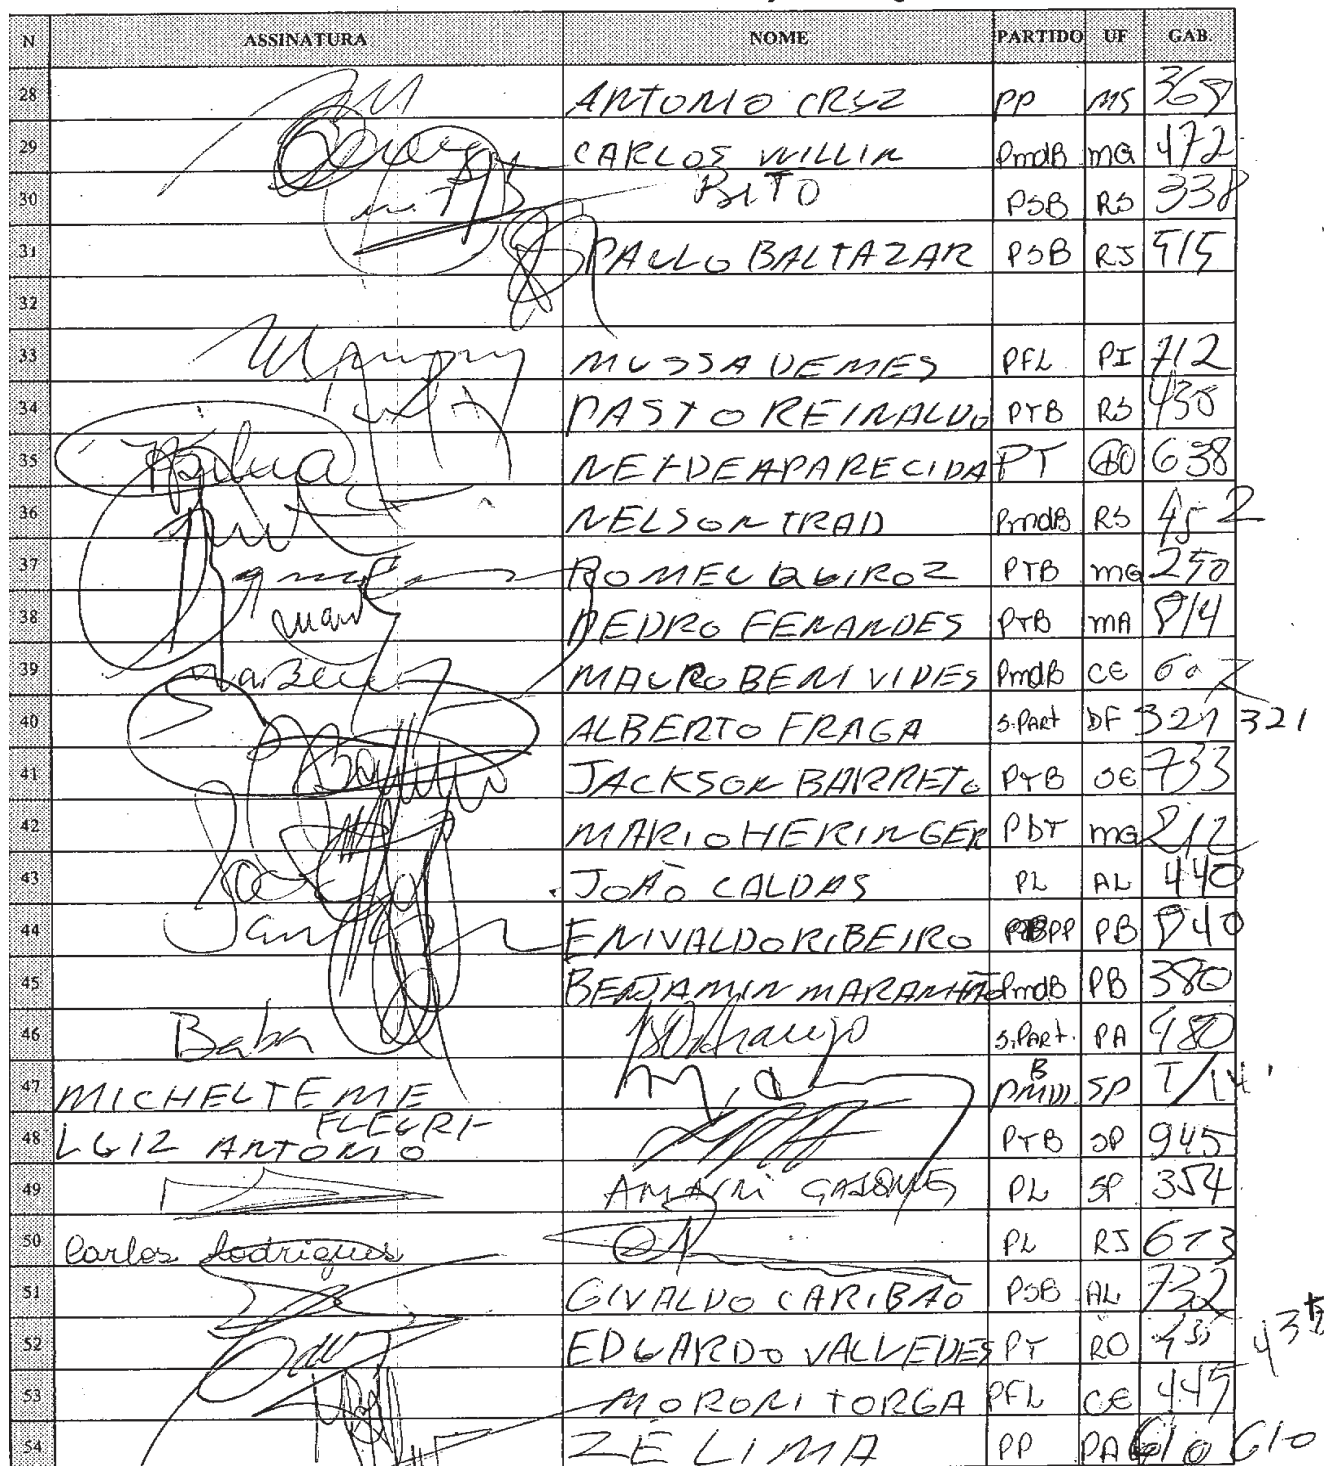 N ASSINATURA NOME PARTIDO UF GAB.
28 ANTONIO CRUZ PP MS 369
29 CARLOS WILLIN PmdB MG 472
30 BETO PSB RS 338
31 PAULO BALTAZAR PSB RJ 515
32
33 MUSSA DEMES PFL PI 712
34 PASTO REINALDO PTB RS
35 NEIDE APARECIDA PT GO 638
36 NELSON TRAD PmdB RS 452
37 ROMEU QUIROZ PTB MG 250
38 PEDRO FENANDES PTB MA 814
39 MAURO BENIVIDES PmdB CE 607
40 ALBERTO FRAGA S.PART DF 321 321
41 JACKSON BARRETO PTB SE 733
42 MARIO HERINGER PDT MG 212
43 JOÃO CALDAS PL AL 440
44 ENIVALDO RIBEIRO PP PB 840
45 BENJAMIN MARANHÃO PmdB PB 380
46 Baba S.PART. PA 980
47 MICHEL TEME PMDB SP T/14
48 LUIZ ANTONIO FLEURI- PTB SP 945
49 PL SP 354
50 Carlos Rodrigues PL RJ 613
51 GIVALDO CARIBÃO PSB AL 732
52 EDUARDO VALVEDES PT RO 435
53 MORONI TORGA PFL CE 445
54 ZÉ LIMA PP PA 610 610